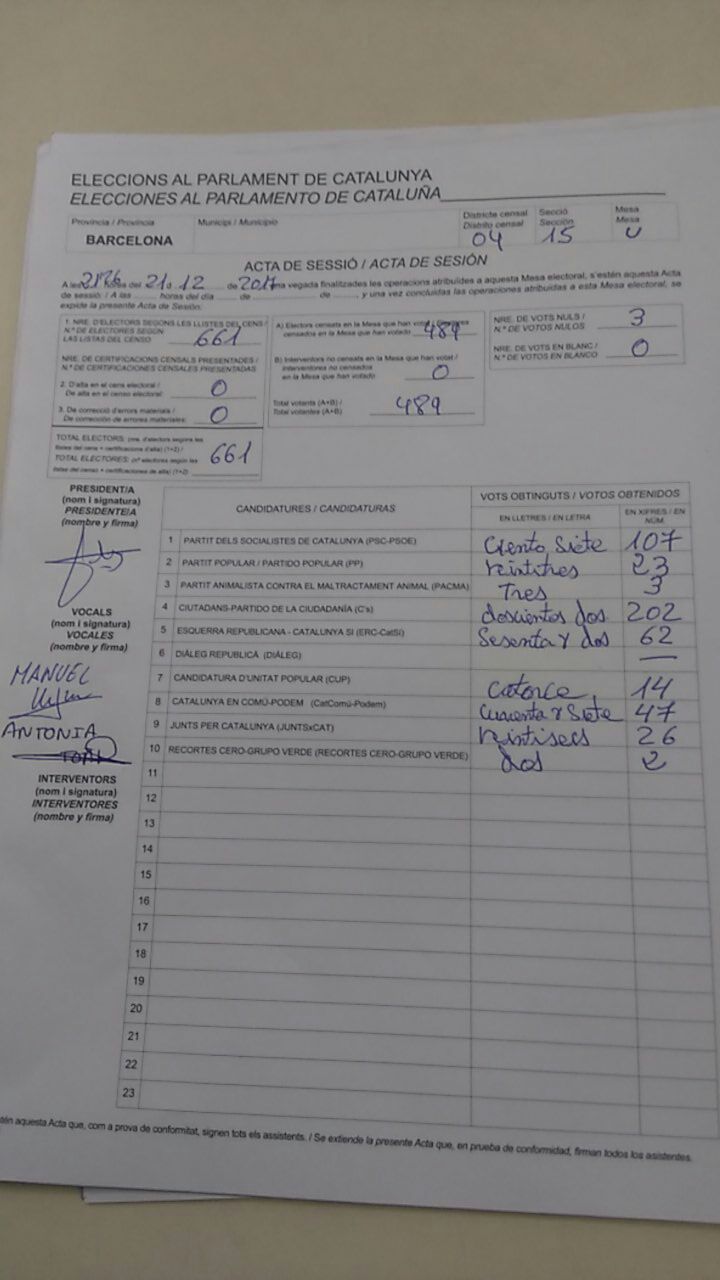 ELECCIONS AL PARLAMENT DE CATALUNYA
ELECCIONES AL PARLAMENTO DE CATALUÑA
Província / Provincia
BARCELONA
Municipi / Municipio
Districte censal
Distrito censal
04
Secció
Sección
15
Mesa
Mesa
U
ACTA DE SESSIÓ / ACTA DE SESIÓN
A les 21'26 hores del 21 d 12 de 2017 una vegada finalitzades les operacions atribuïdes a aquesta Mesa electoral, s'estén aquesta Acta
de sessió / A las horas del día de de y una vez concluidas las operaciones atribuidas a esta Mesa electoral, se
expide la presente Acta de Sesión:
1. NRE. D'ELECTORS SEGONS LES LLISTES DEL CENS /
N.º DE ELECTORES SEGÚN
LAS LISTAS DEL CENSO 661
NRE. DE CERTIFICACIONS CENSALS PRESENTADES /
N.º DE CERTIFICACIONES CENSALES PRESENTADAS
2. D'alta en el cens electoral /
De alta en el censo electoral: 0
3. De correcció d'errors materials /
De corrección de errores materiales: 0
TOTAL ELECTORS: (nre. d'electors segons les
llistes del cens + certificacions d'alta) (1+2) /
TOTAL ELECTORES: (nº electores según las
listas del censo + certificaciones de alta) (1+2) 661
A) Electors censats en la Mesa que han votat / Electores
censados en la Mesa que han votado 489
B) Interventors no censats en la Mesa que han votat /
Interventores no censados
en la Mesa que han votado 0
Total votants (A+B) /
Total votantes (A+B) 489
NRE. DE VOTS NULS /
N.º DE VOTOS NULOS 3
NRE. DE VOTS EN BLANC /
N.º DE VOTOS EN BLANCO 0
PRESIDENT/A
(nom i signatura)
PRESIDENTE/A
(nombre y firma)
VOCALS
(nom i signatura)
VOCALES
(nombre y firma)
MANUEL
ANTONIA
INTERVENTORS
(nom i signatura)
INTERVENTORES
(nombre y firma)
CANDIDATURES / CANDIDATURAS
VOTS OBTINGUTS / VOTOS OBTENIDOS
EN LLETRES / EN LETRA
EN XIFRES / EN NÚM.
1 PARTIT DELS SOCIALISTES DE CATALUNYA (PSC-PSOE) Ciento Siete 107
2 PARTIT POPULAR / PARTIDO POPULAR (PP) veintitres 23
3 PARTIT ANIMALISTA CONTRA EL MALTRACTAMENT ANIMAL (PACMA) Tres 3
4 CIUTADANS-PARTIDO DE LA CIUDADANÍA (C's) doscientos dos 202
5 ESQUERRA REPUBLICANA - CATALUNYA SÍ (ERC-CatSí) Sesenta y dos 62
6 DIÀLEG REPUBLICÀ (DIÀLEG) —
7 CANDIDATURA D'UNITAT POPULAR (CUP) Catorce 14
8 CATALUNYA EN COMÚ-PODEM (CatComú-Podem) Cuarenta y Siete 47
9 JUNTS PER CATALUNYA (JUNTSxCAT) veintiseis 26
10 RECORTES CERO-GRUPO VERDE (RECORTES CERO-GRUPO VERDE) dos 2
11
12
13
14
15
16
17
18
19
20
21
22
23
aquesta Acta que, com a prova de conformitat, signen tots els assistents. / Se extiende la presente Acta que, en prueba de conformidad, firman todos los asistentes.